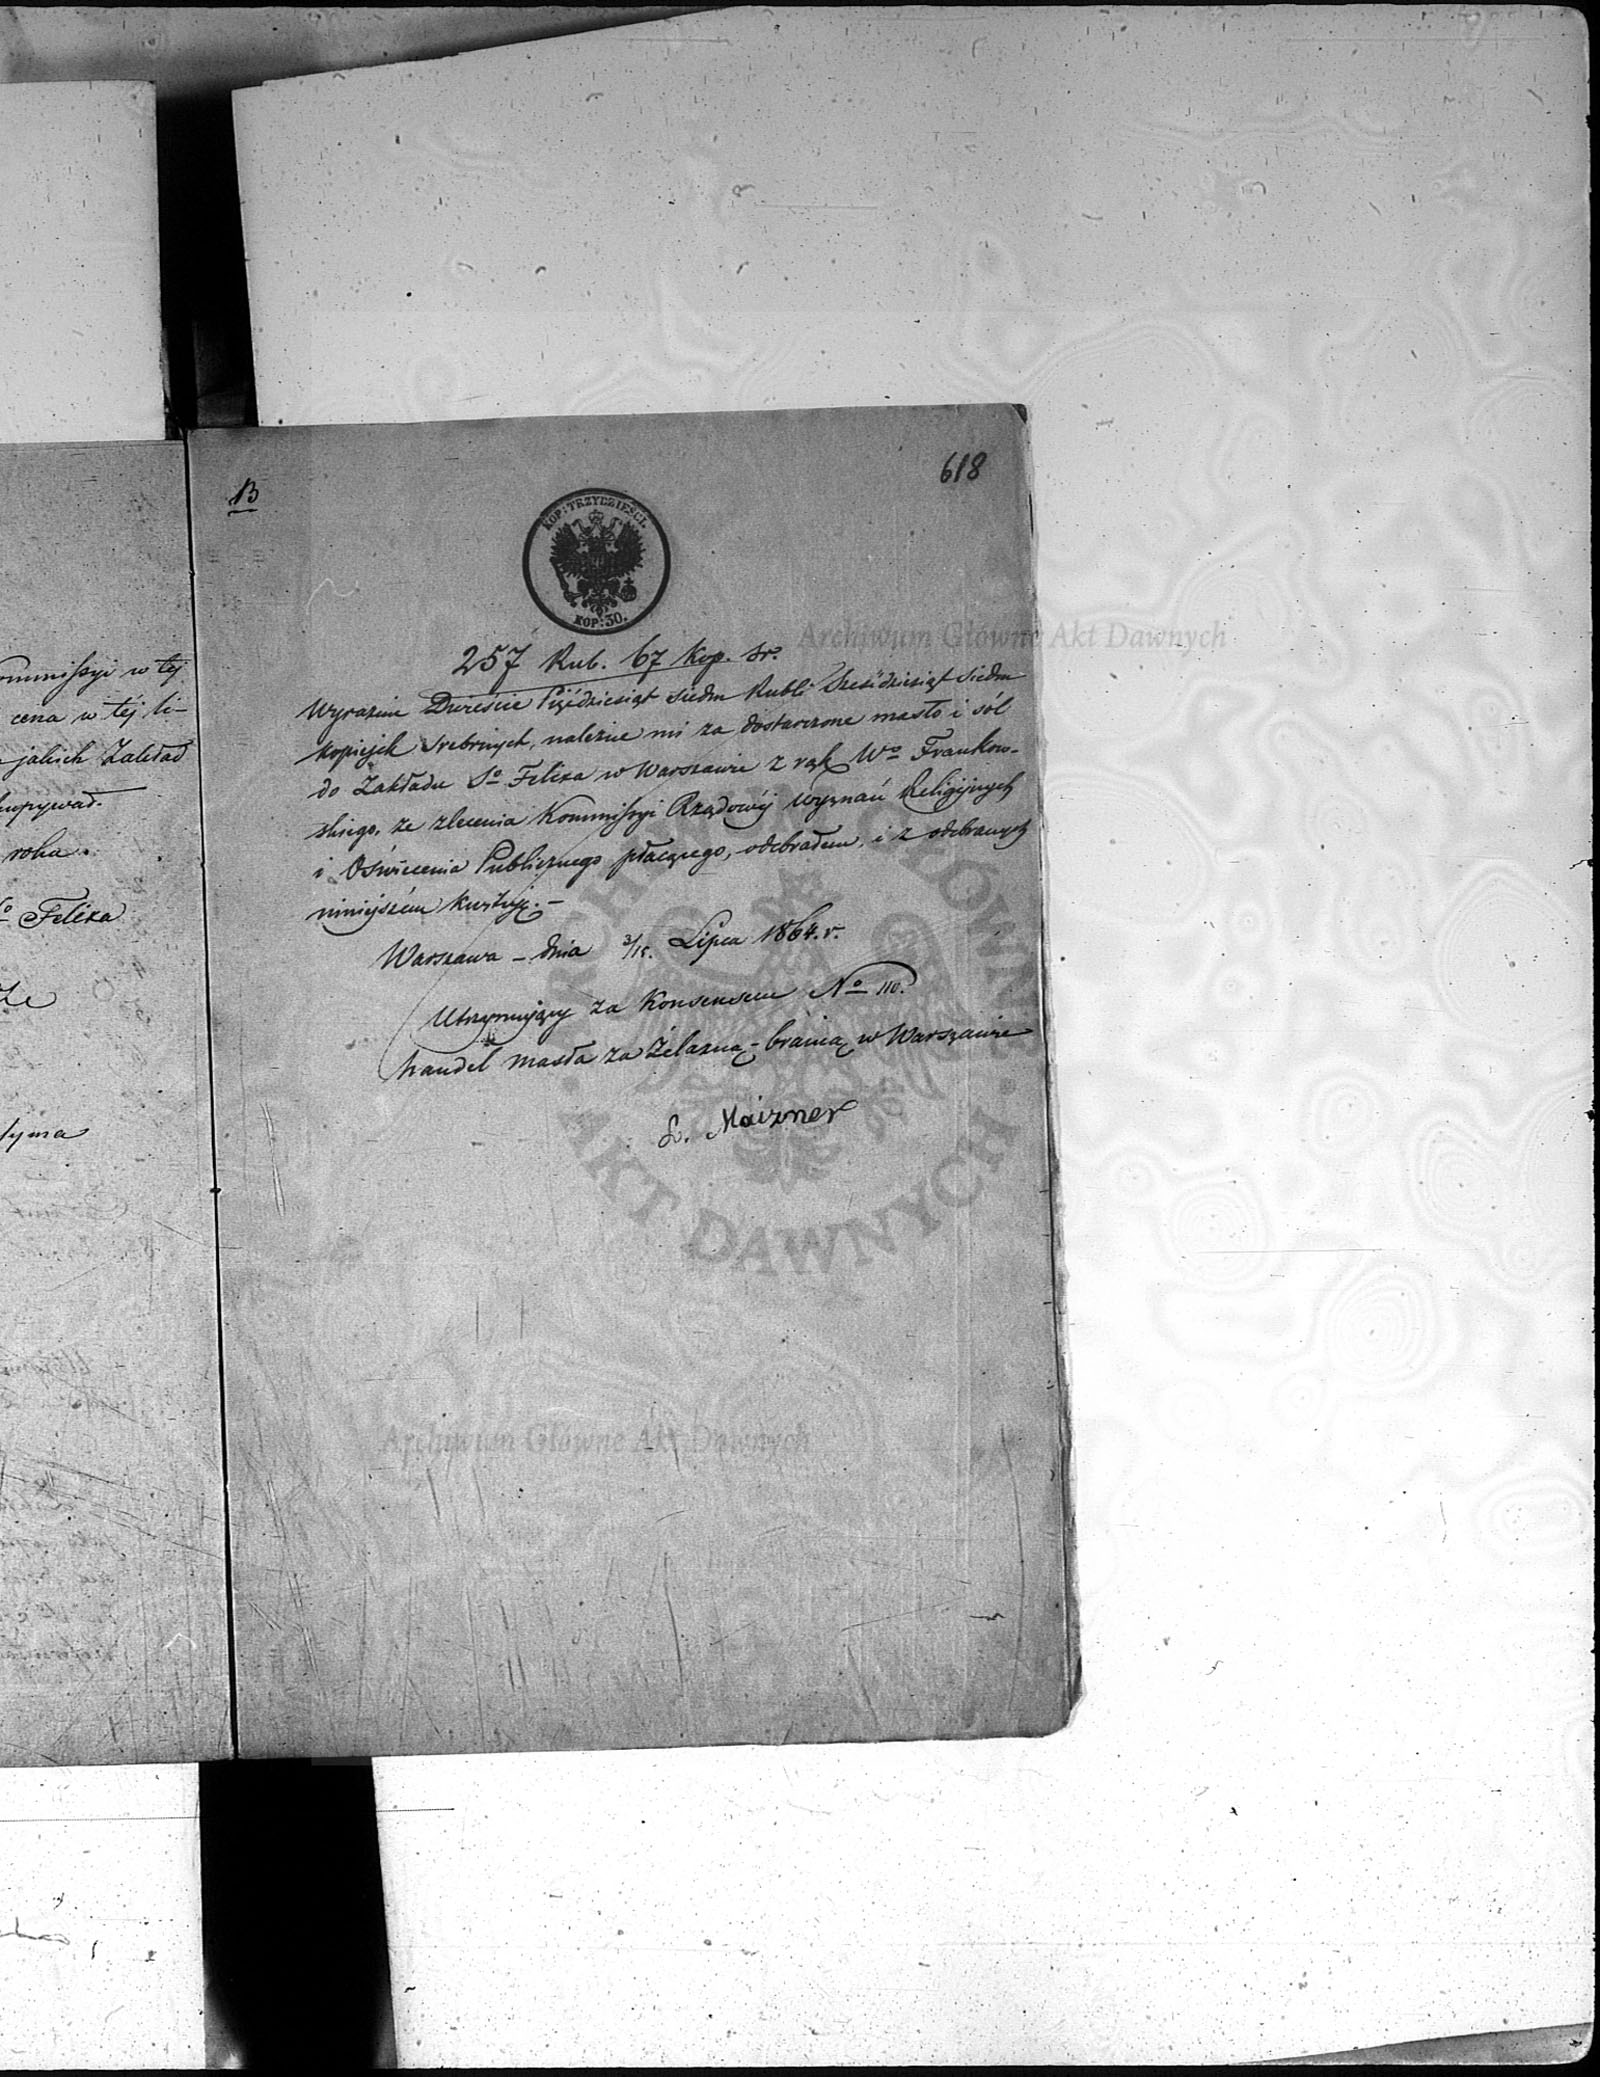 ommissyi w tej
cena w téj li-
jakich Zakład
kupywał.
roku.
So Felixa
tyma
B
618
KOP: TRZYDZIEŚCI.
KOP: 30.
257 Rub. 67 Kop. Sr.
Wyraźnie Dwieście Pięćdziesiąt siedm Rubli Sześćdziesiąt siedm
kopiejek srebrnych, należne mi za dostarczone masło i sól
do Zakładu So Felixa w Warszawie z rąk Wo Frankow-
skiego, ze zlecenia Kommissyi Rządowéj Wyznań Religijnych
i Oświecenia Publicznego płacącego, odebrałem, i z odebranych
niniejszém kwituję.-
Warszawa – dnia 3/15. Lipca 1864. r.
Utrzymujący za Konsensem No 110.
handel masła za Żelazną-bramą w Warszawie
L. Maizner
Archiwum Główne Akt Dawnych
ARCHIWUM GŁÓWNE AKT DAWNYCH
Archiwum Główne Akt Dawnych